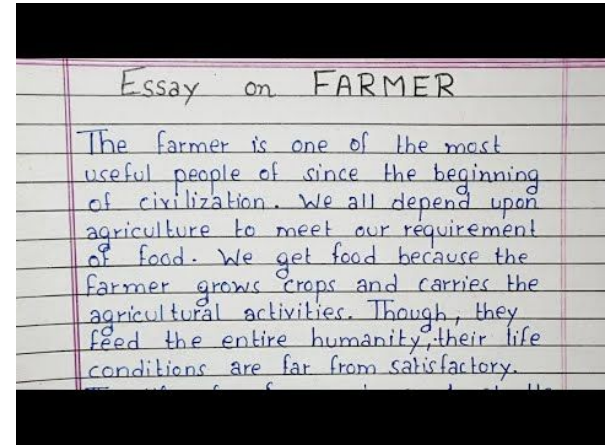 Essay on FARMER
The farmer is one of the most
useful people of since the beginning
of civilization. We all depend upon
agriculture to meet our requirement
of food. We get food because the
farmer grows crops and carries the
agricultural activities. Though, they
feed the entire humanity, their life
conditions are far from satisfactory.